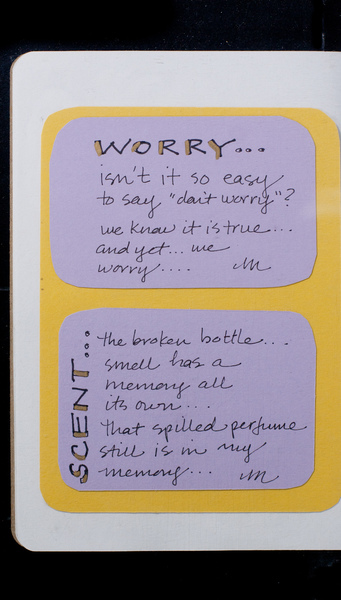 WORRY...
isn't it so easy
to say "don't worry"?
we know it is true...
and yet... we
worry.... M
SCENT...
the broken bottle...
smell has a
memory all
its own...
that spilled perfume
still is in my
memory... M